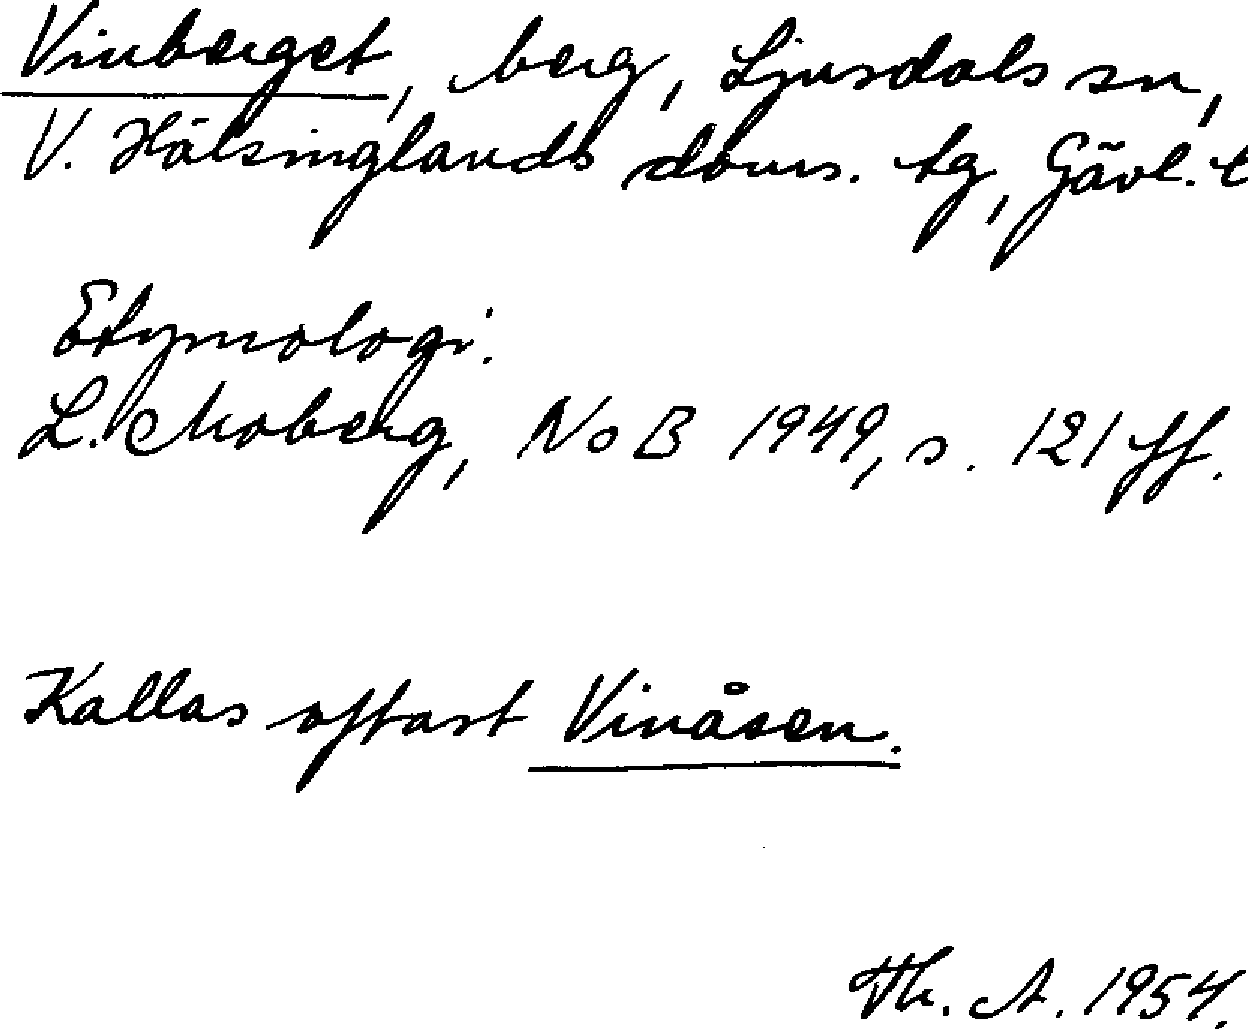 Vinberget, berg, Ljusdals sn,
V. Hälsinglands doms. tg, Gävl. l
Etymologi:
L. Moberg, NoB 1949, s. 121 ff.
Kallas oftast Vinåsen.
Th. A. 1954.